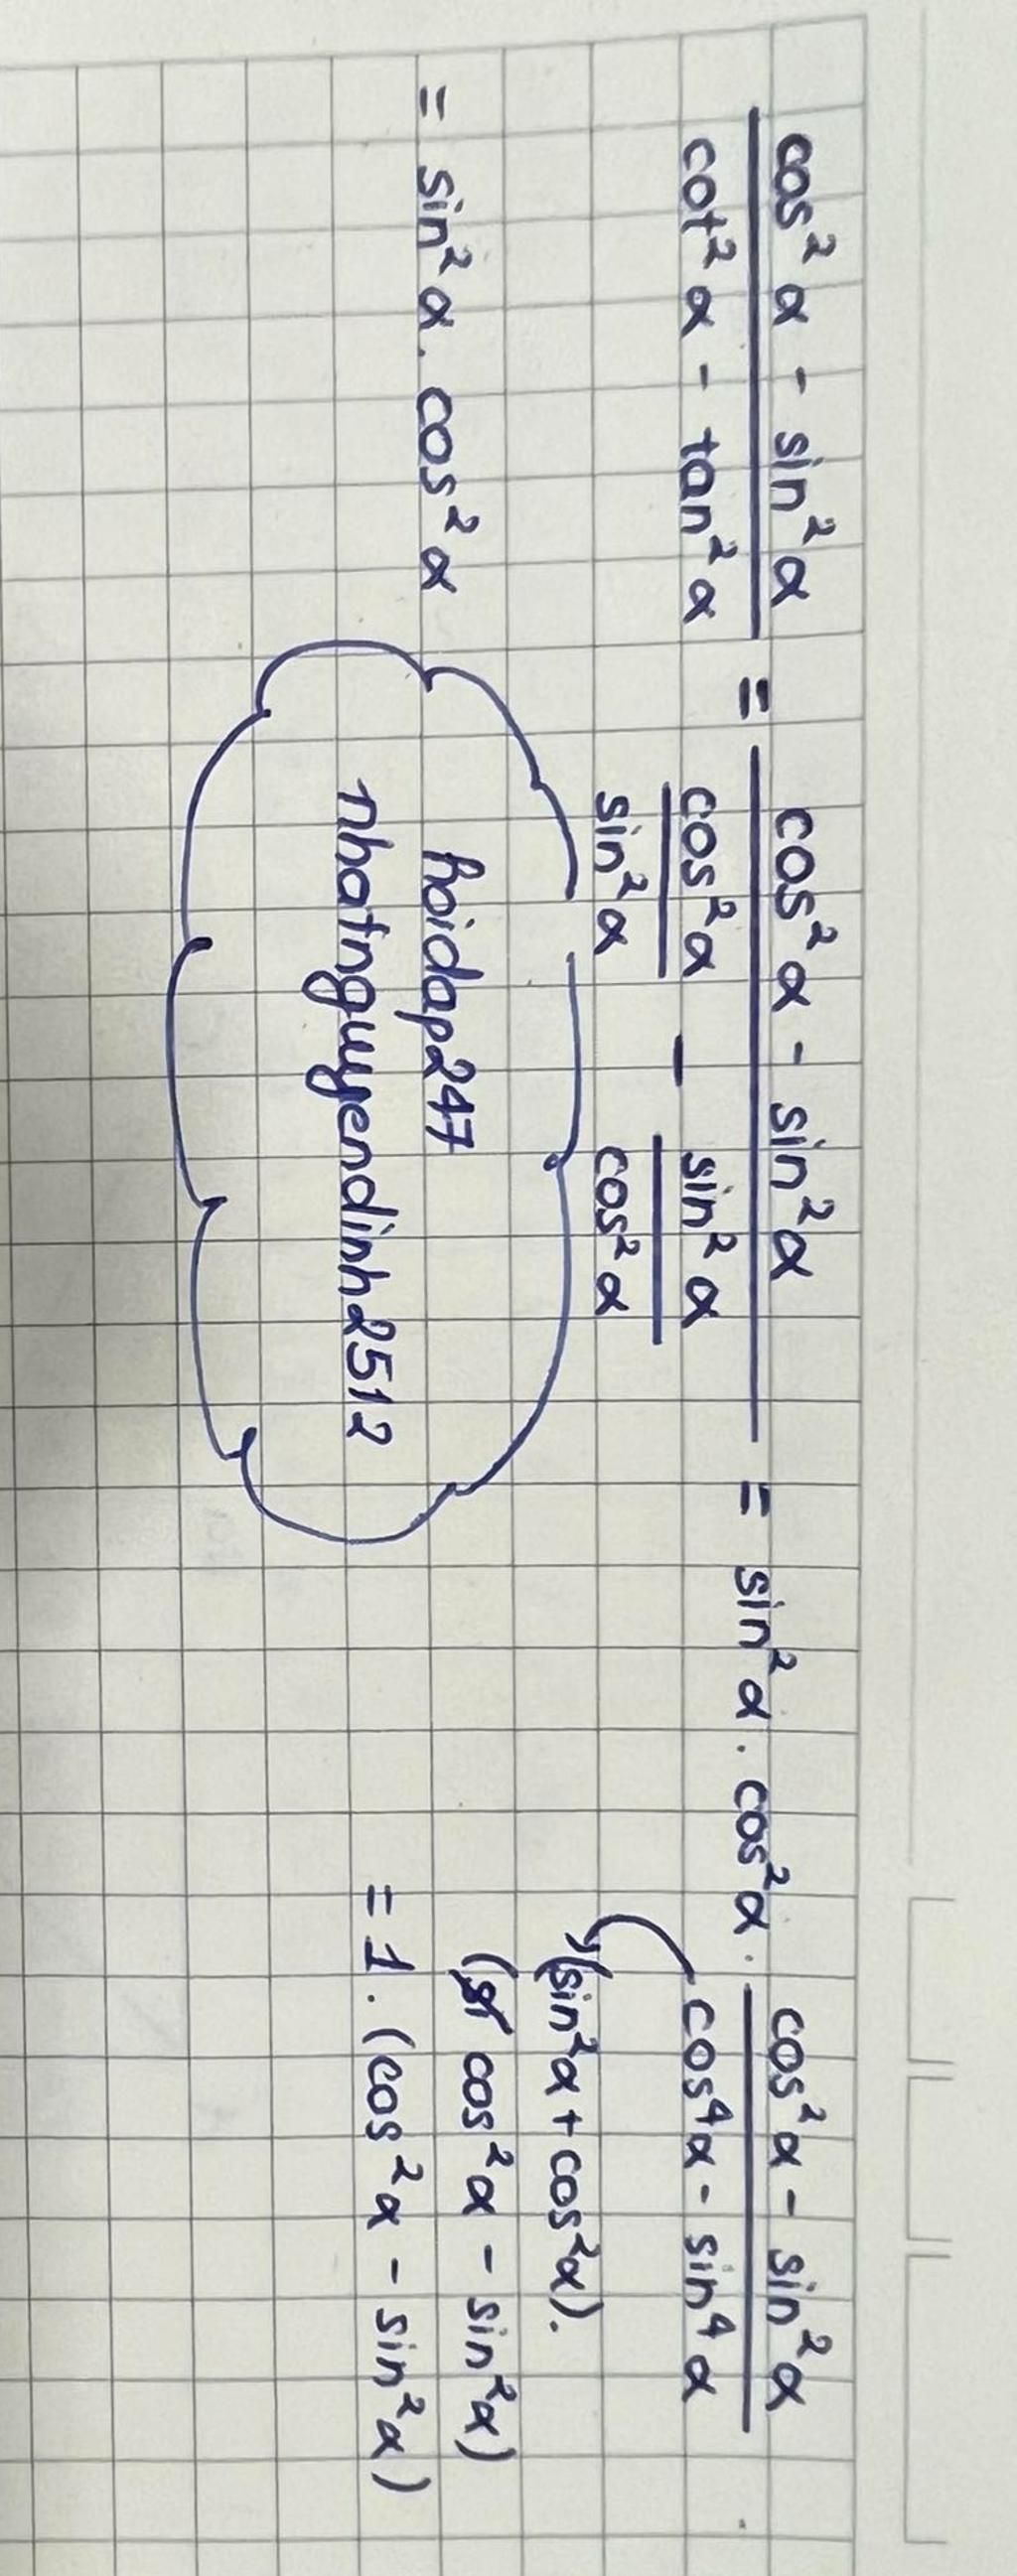 cos² α - sin² α / cot² α - tan² α = cos² α - sin² α / (cos² α / sin² α - sin² α / cos² α) = sin² α . cos² α . cos² α - sin² α / cos⁴ α - sin⁴ α
(sin² α + cos² α).
( cos² α - sin² α)
= 1. (cos² α - sin² α)
= sin² α. cos² α
hoidap247
nhatnguyendinh2512